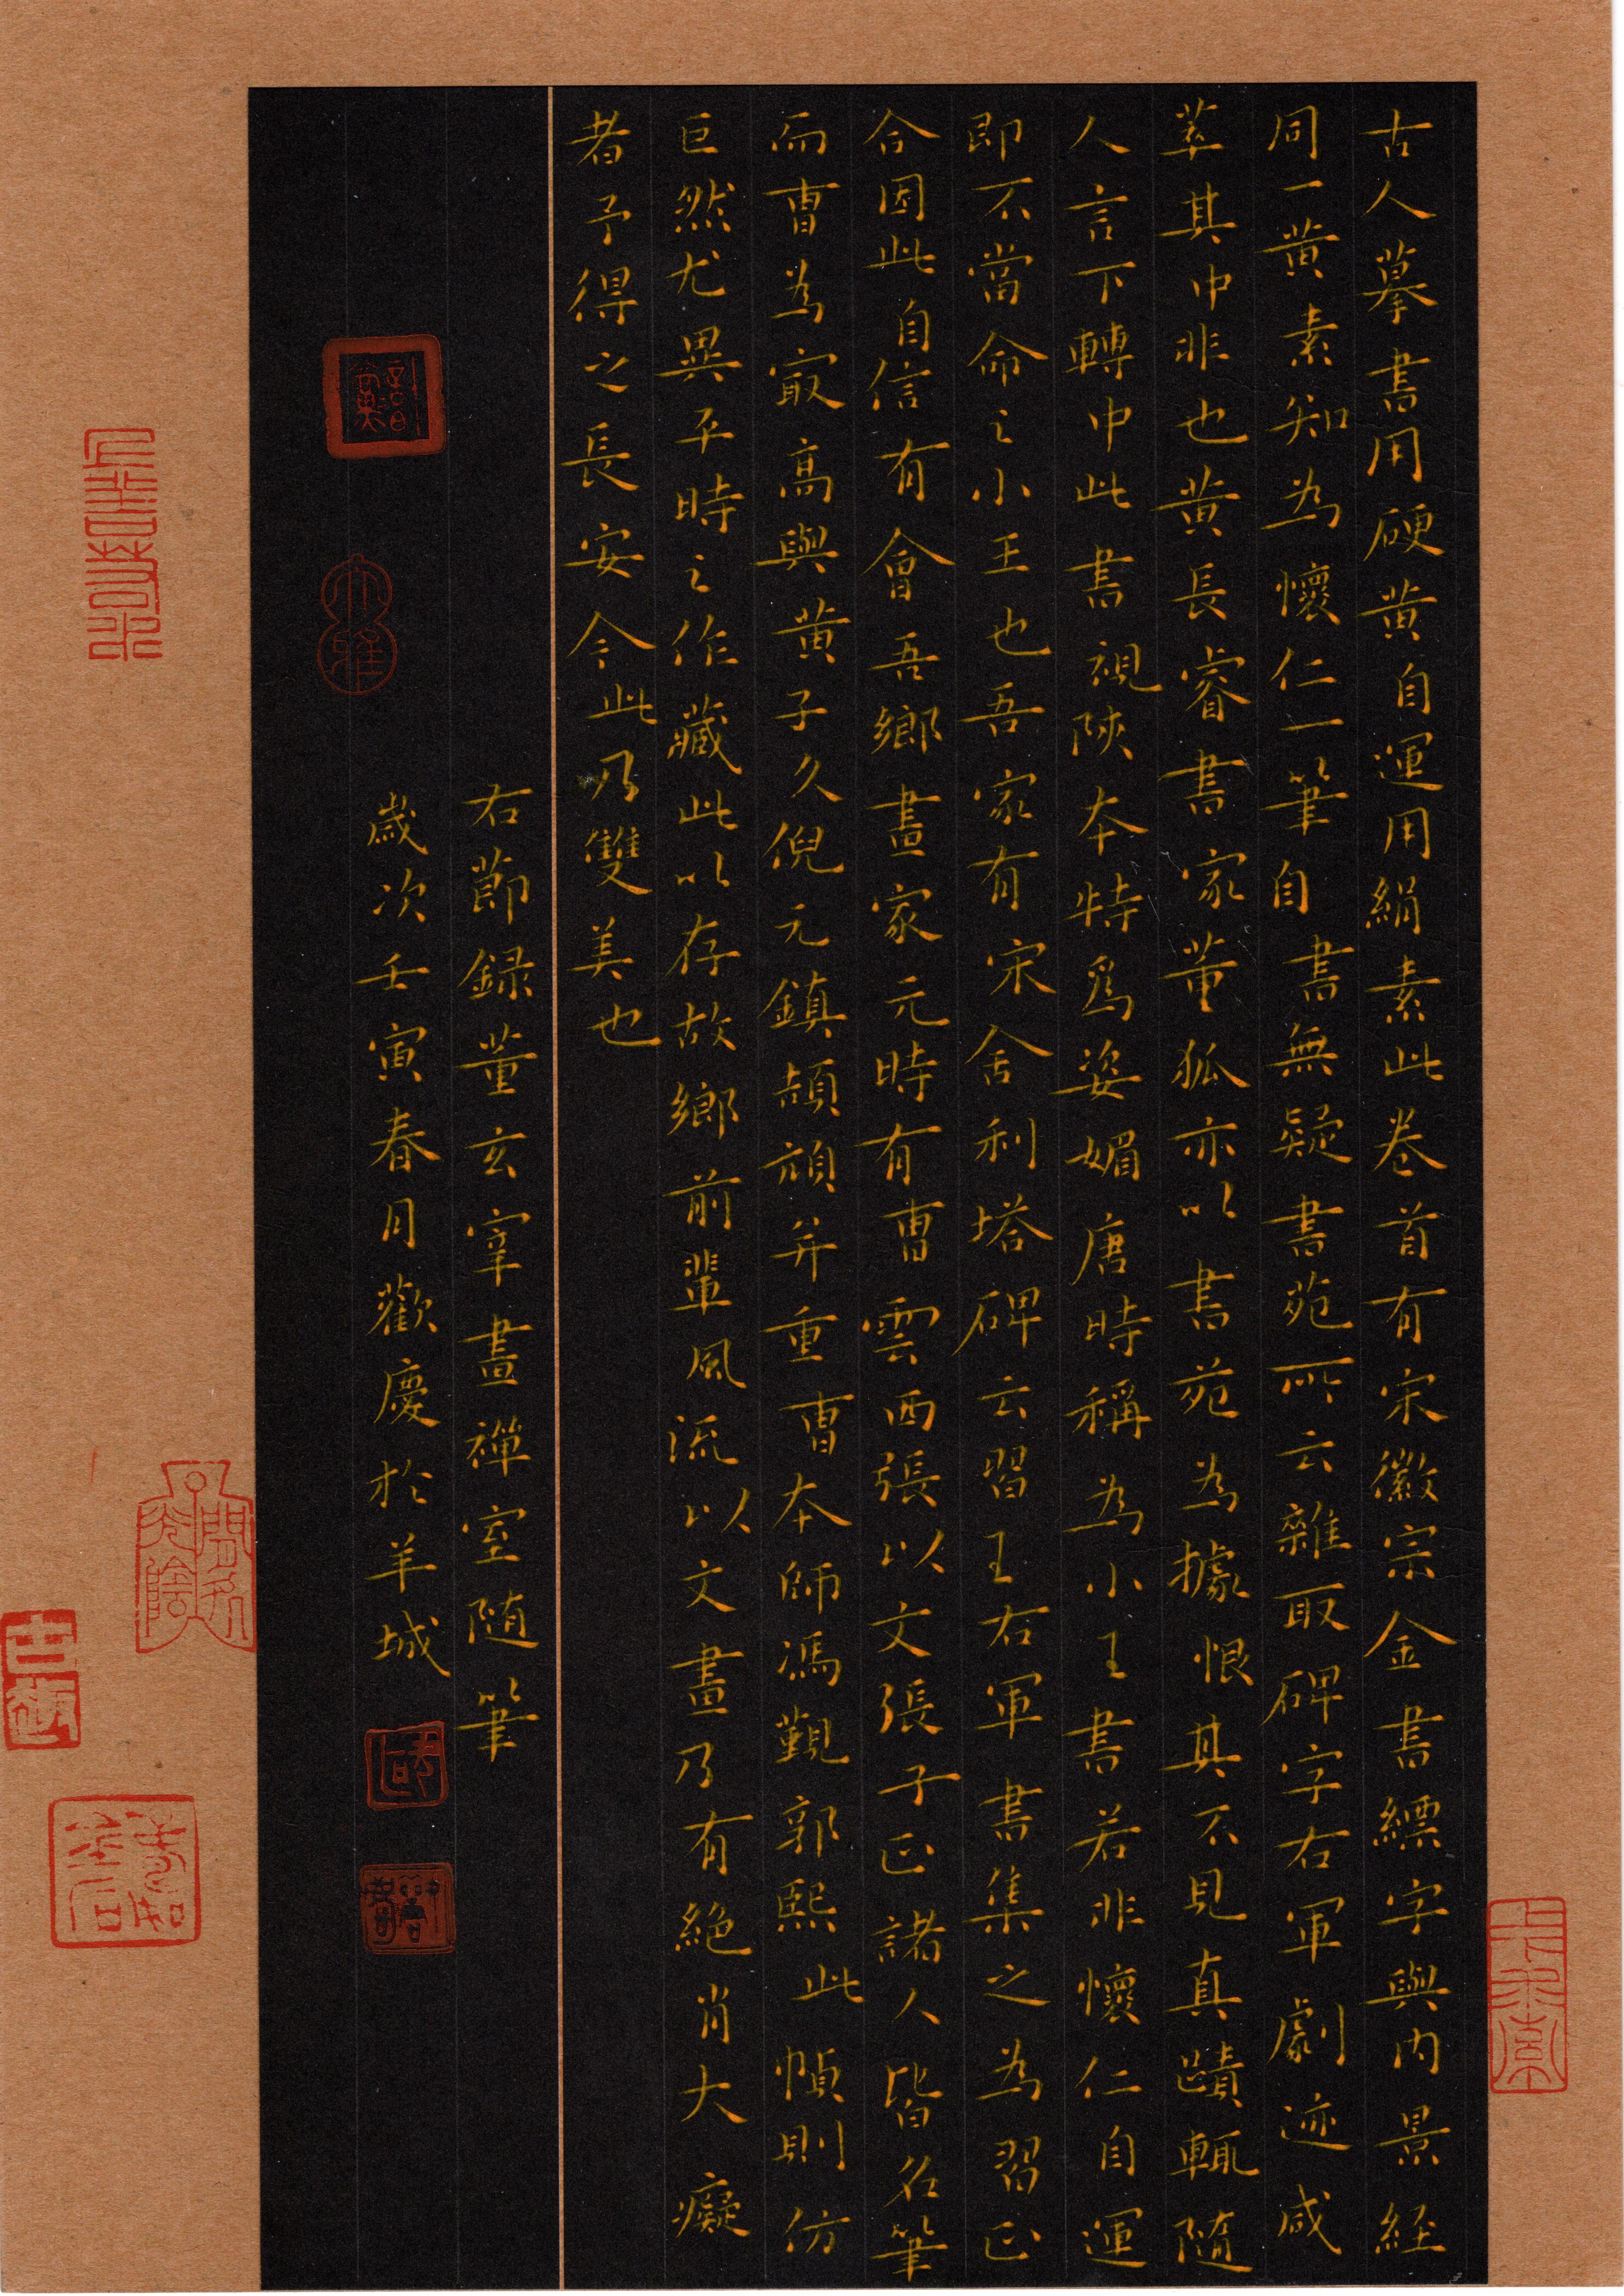 古人摹書用硬黄自運用絹素此卷首有宋徽宗金書縹字與内景経
同一黄素知為懷仁一筆自書無疑書苑所云雜取碑字右軍劇迹咸
萃其中非也黄長睿書家董狐亦以書苑為據恨其不見真蹟輒隨
人言下轉中此書視陝本特爲姿媚唐時稱為小王書若非懷仁自運
即不當命之小王也吾家有宋舍利塔碑云習王右軍書集之為習正
合因此自信有會吾鄉畫家元時有曹雲西張以文張子正諸人皆名筆
而曹為冣高與黄子久倪元鎮頡頏并重曹本師馮覲郭熙此幀則仿
巨然尤異平時之作藏此以存故鄉前輩風流以文畫乃有絶肖大癡
者予得之長安今此乃雙美也
右節録董玄宰畫禪室随筆
歲次壬寅春月歡慶於羊城
大雅